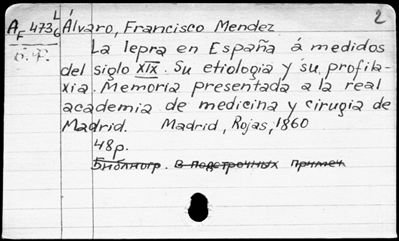 2
A F 473 L 6 Álvaro, Francisco Mendez
La lepra en España á medidos
del siglo XIX. Su etiologia y su profila-
xia. Memoria presentada a la real
academia de medicina y cirugia de
Madrid. Madrid, Rojas, 1860
48p.
Библиогр. в подстрочных примеч